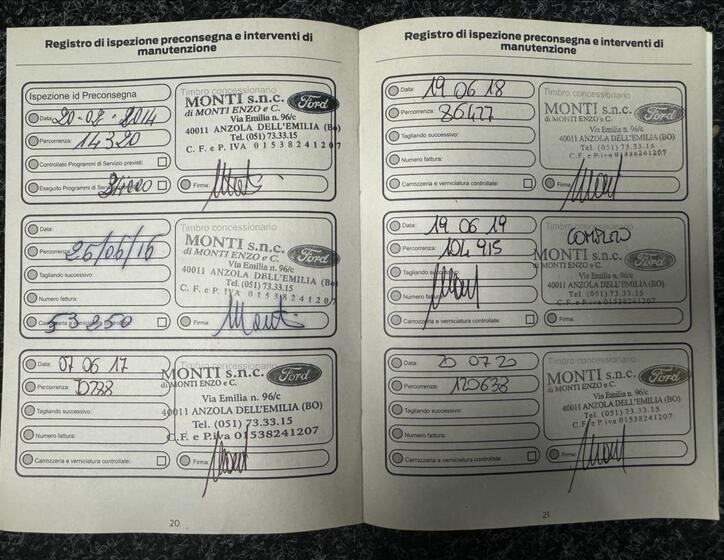 Registro di ispezione preconsegna e interventi di
manutenzione
Ispezione id Preconsegna
Data:
Percorrenza: 14320
Controllato Programmi di Servizio previsti:
Eseguito Programmi di
Timbro concessionario
MONTI s.n.c. Ford
di MONTI ENZO e C.
Via Emilia n. 96/c
40011 ANZOLA DELL'EMILIA (Bo)
Tel. (051) 73.33.15
C. F. e P. IVA 01538241207
Firma:
Data:
Percorrenza:
Tagliando successivo:
Numero fattura:
53250
Timbro concessionario
MONTI s.n.c. Ford
di MONTI ENZO e C.
Via Emilia n. 96/c
40011 ANZOLA DELL'EMILIA (Bo)
Tel. (051) 73.33.15
C. F. e P. IVA 01538241207
Firma:
Data: 07 06 17
Percorrenza:
Tagliando successivo:
Numero fattura:
Carrozzeria e verniciatura controllate:
Timbro concessionario
MONTI s.n.c. Ford
di MONTI ENZO e C.
Via Emilia n. 96/c
40011 ANZOLA DELL'EMILIA (BO)
Tel. (051) 73.33.15
C.F. e P.iva 01538241207
Firma:
20
Registro di ispezione preconsegna e interventi di
manutenzione
Data: 19 06 18
Percorrenza: 86427
Tagliando successivo:
Numero fattura:
Carrozzeria e verniciatura controllate:
Timbro concessionario
MONTI s.n.c. Ford
di MONTI ENZO e C.
Via Emilia n. 96/c
40011 ANZOLA DELL'EMILIA (BO)
Tel. (051) 73.33.15
C.F. e P.iva 01538241207
Firma:
Data: 19 06 19
Percorrenza: 104915
Tagliando
Numero fattura:
Carrozzeria e verniciatura controllate:
Timbro concessionario
MONTI s.n.c. Ford
di MONTI ENZO e C.
Via Emilia n. 96/c
40011 ANZOLA DELL'EMILIA (BO)
Tel. (051) 73.33.15
C.F. e P.iva 01538241207
Firma:
Data: 20 07 20
Percorrenza: 120633
Tagliando successivo:
Numero fattura:
Carrozzeria e verniciatura controllate:
Timbro concessionario
MONTI s.n.c. Ford
di MONTI ENZO e C.
Via Emilia n. 96/c
40011 ANZOLA DELL'EMILIA (BO)
Tel. (051) 73.33.15
C.F. e P.iva 01538241207
Firma:
21